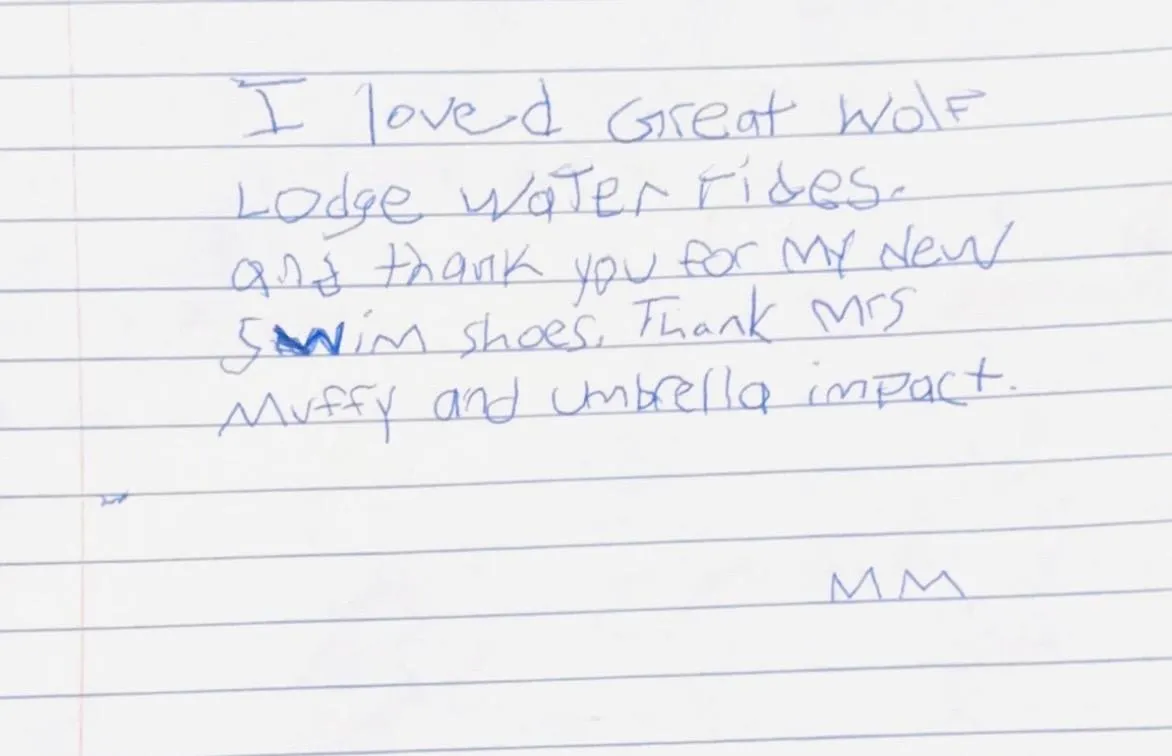 I loved Great Wolf
Lodge Water rides.
and thank you for my New
Swim shoes. Thank Mrs
Muffy and Umbrella impact.
MM